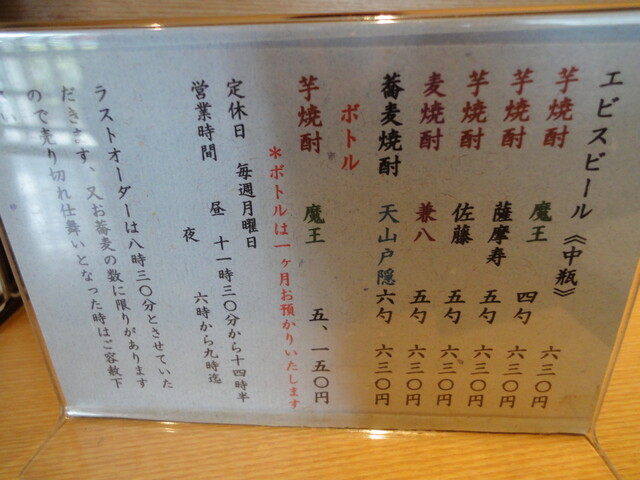 エビスビール《中瓶》 六三〇円
芋焼酎 魔王 四勺 六三〇円
芋焼酎 薩摩寿 五勺 六三〇円
芋焼酎 佐藤 五勺 六三〇円
麦焼酎 兼八 五勺 六三〇円
蕎麦焼酎 天山戸隠 六勺 六三〇円
ボトル
芋焼酎 魔王 五、一五〇円
＊ボトルは一ヶ月お預かりいたします
定休日 毎週月曜日
営業時間 昼 十一時三〇分から十四時半
夜 六時から九時迄
ラストオーダーは八時三〇分とさせていた
だきます、又お蕎麦の数に限りがあります
ので売り切れ仕舞いとなった時はご容赦下